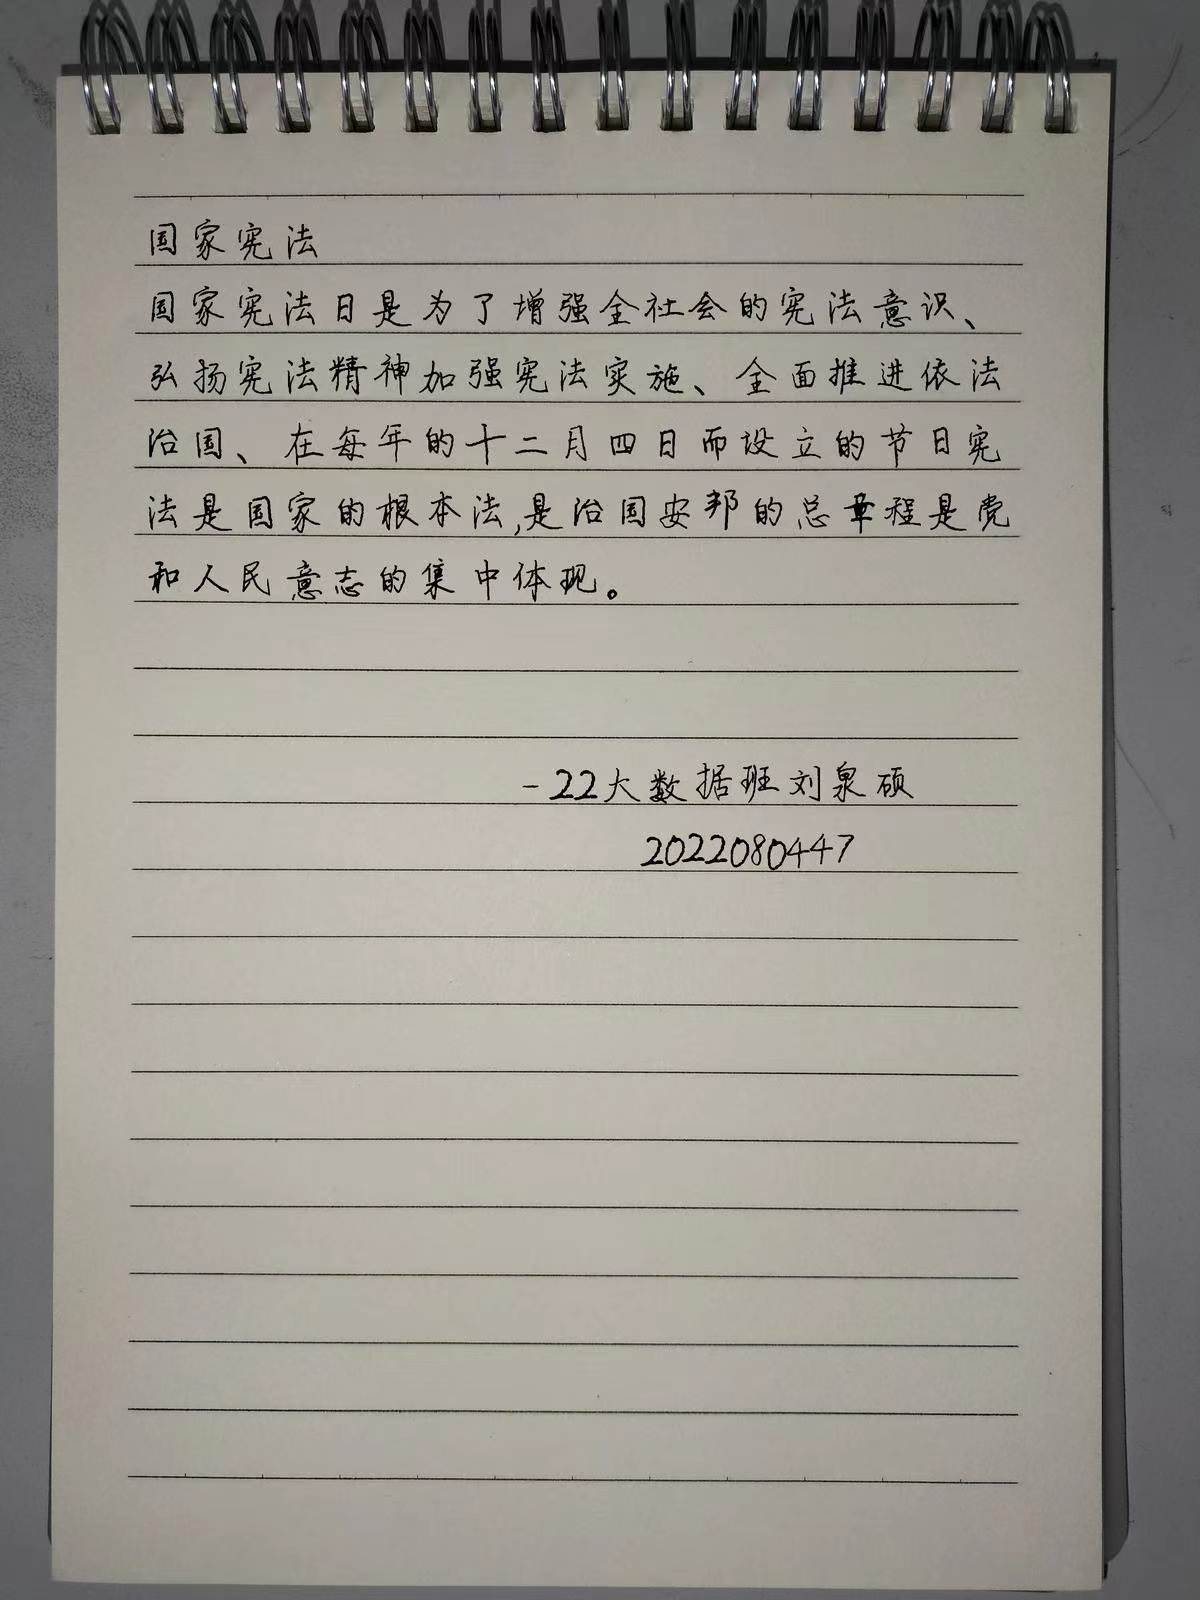 国家宪法
国家宪法日是为了增强全社会的宪法意识、
弘扬宪法精神加强宪法实施、全面推进依法
治国、在每年的十二月四日而设立的节日宪
法是国家的根本法,是治国安邦的总章程是党
和人民意志的集中体现。
-22大数据班刘泉硕
2022080447